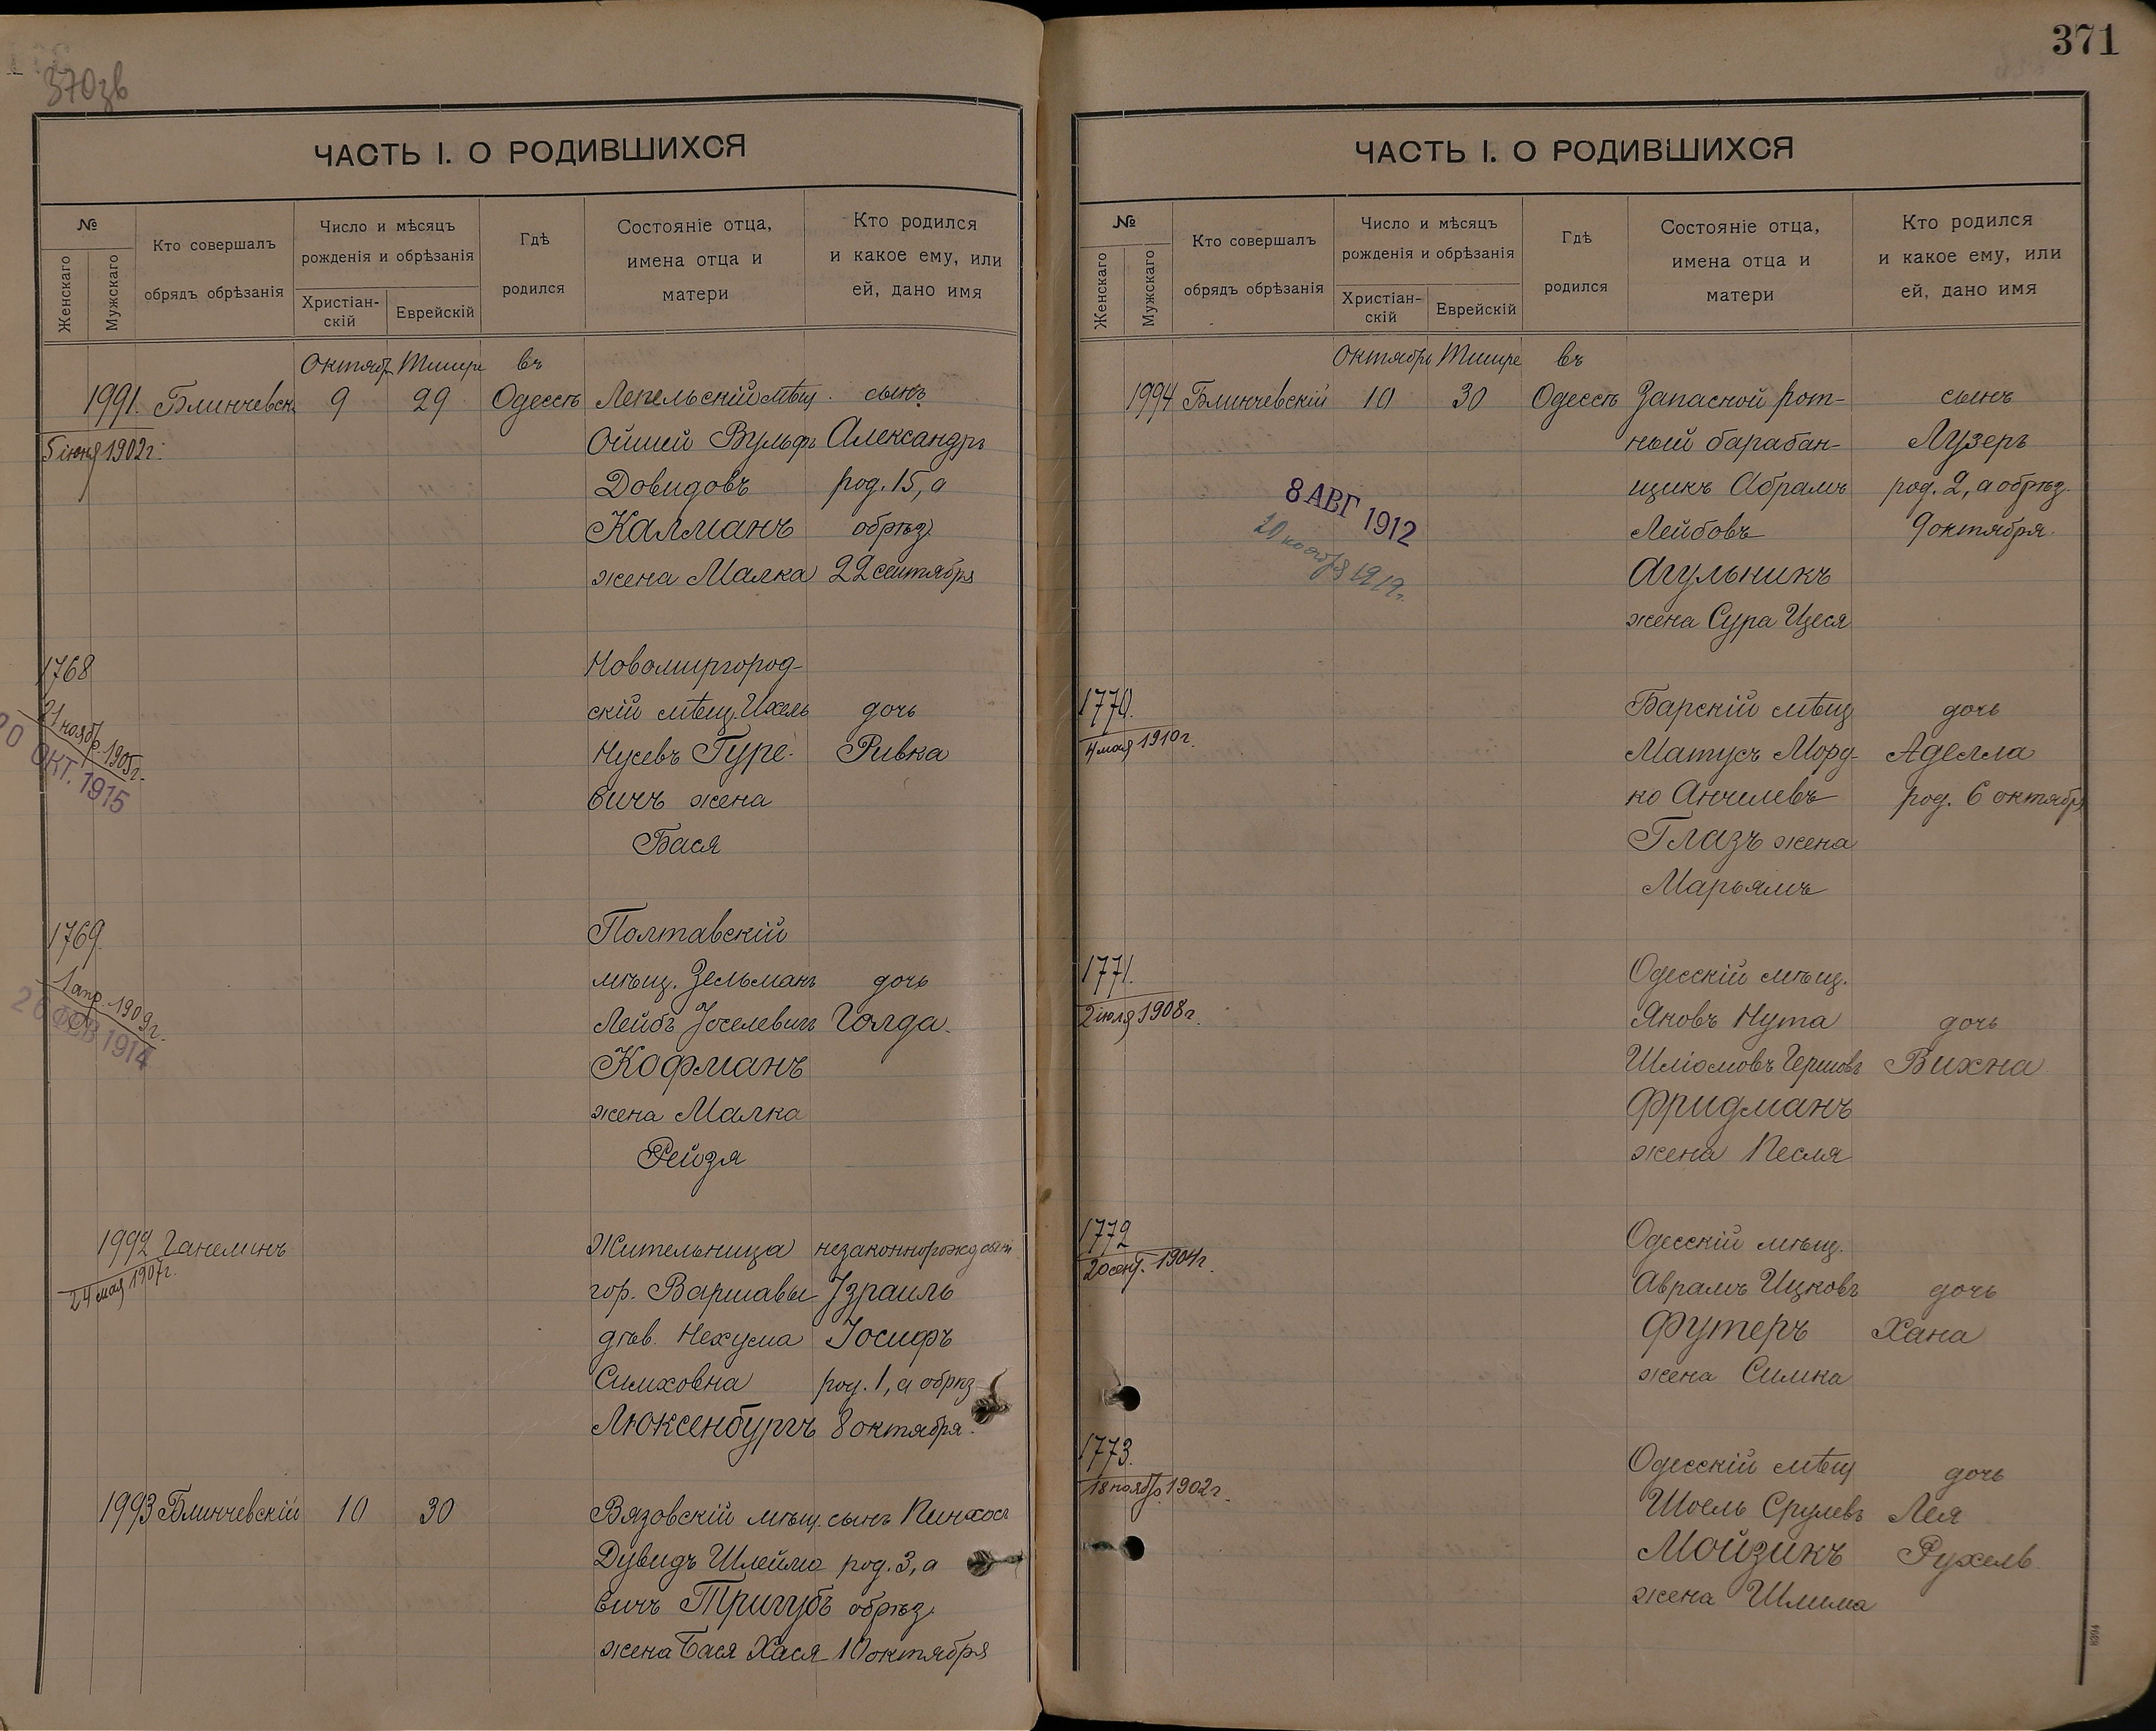 370зв
ЧАСТЬ I. О РОДИВШИХСЯ
№
Женскаго
Мужскаго
Кто совершалъ
обрядъ обрѣзанія
Число и мѣсяцъ
рожденія и обрѣзанія
Христіан-
скій
Еврейскій
Гдѣ
родился
Состояніе отца,
имена отца и
матери
Кто родился
и какое ему, или
ей, дано имя
Октябр Тишре въ
1991. Блинчевск 9 29 Одессѣ Лепельскій мѣщ. сынъ
5 іюня 1902 г. Ойшей Вульфъ Александръ
Довидовъ род. 15, а
Калманъ обрѣз.
жена Малка 22 сентября
1768 Новомиргород-
скій мѣщ. Ихель дочь
21 ноябр. 1905 г. Нусевъ Гуре- Ривка
ОКТ. 1915 вичъ жена
Бася
1769. Полтавскій
мѣщ. Зельманъ дочь
1 апр. 1909 г. Лейбъ Іоселевич Голда
26 ФЕВ 1914 Кофманъ
жена Малка
Рейзя
1992 Ганелинъ Жительница незаконнорожд
24 мая 1907 г. гор. Варшавы Ізраиль
дѣв. Нехума Іосифъ
Симховна род. 1, а обрѣз
Люксенбургъ 8 октября.
1993 Блинчевскій 10 30 Вязовскій мѣщ. сынъ Пинхос
Дувидъ Шлеймо род. 3, а
вичъ Тригубъ обрѣз.
жена Бася Хася 10 октября
371
ЧАСТЬ I. О РОДИВШИХСЯ
№
Женскаго
Мужскаго
Кто совершалъ
обрядъ обрѣзанія
Число и мѣсяцъ
рожденія и обрѣзанія
Христіан-
скій
Еврейскій
Гдѣ
родился
Состояніе отца,
имена отца и
матери
Кто родился
и какое ему, или
ей, дано имя
Октябрь Тишре въ
1994 Блинчевскій 10 30 Одессѣ Запасной рот- сынъ
ный барабан- Лузеръ
8 АВГ 1912 щикъ Абрамъ род. 2, а обрѣз.
Лейбовъ 9 октября.
Агульникъ
жена Сура Цеся
1770. Барскій мѣщ дочь
4 мая 1910 г. Матусъ Морд- Аделла
ко Анчелевъ род. 6 октябр
Глазъ жена
Марьямъ
1771. Одесскій мѣщ.
2 іюля 1908 г. Яковъ Нута дочь
Шліомовъ Гершовъ Вихна
Фридманъ
жена Песля
1772 Одесскій мѣщ.
20 сент. 1904 г. Аврамъ Ицковъ дочь
Футеръ Хана
жена Симка
1773. Одесскій мѣщ дочь
18 ноябр. 1902 г. Шоель Срулевъ Лея
Мойзикъ Рухель
жена Шлима